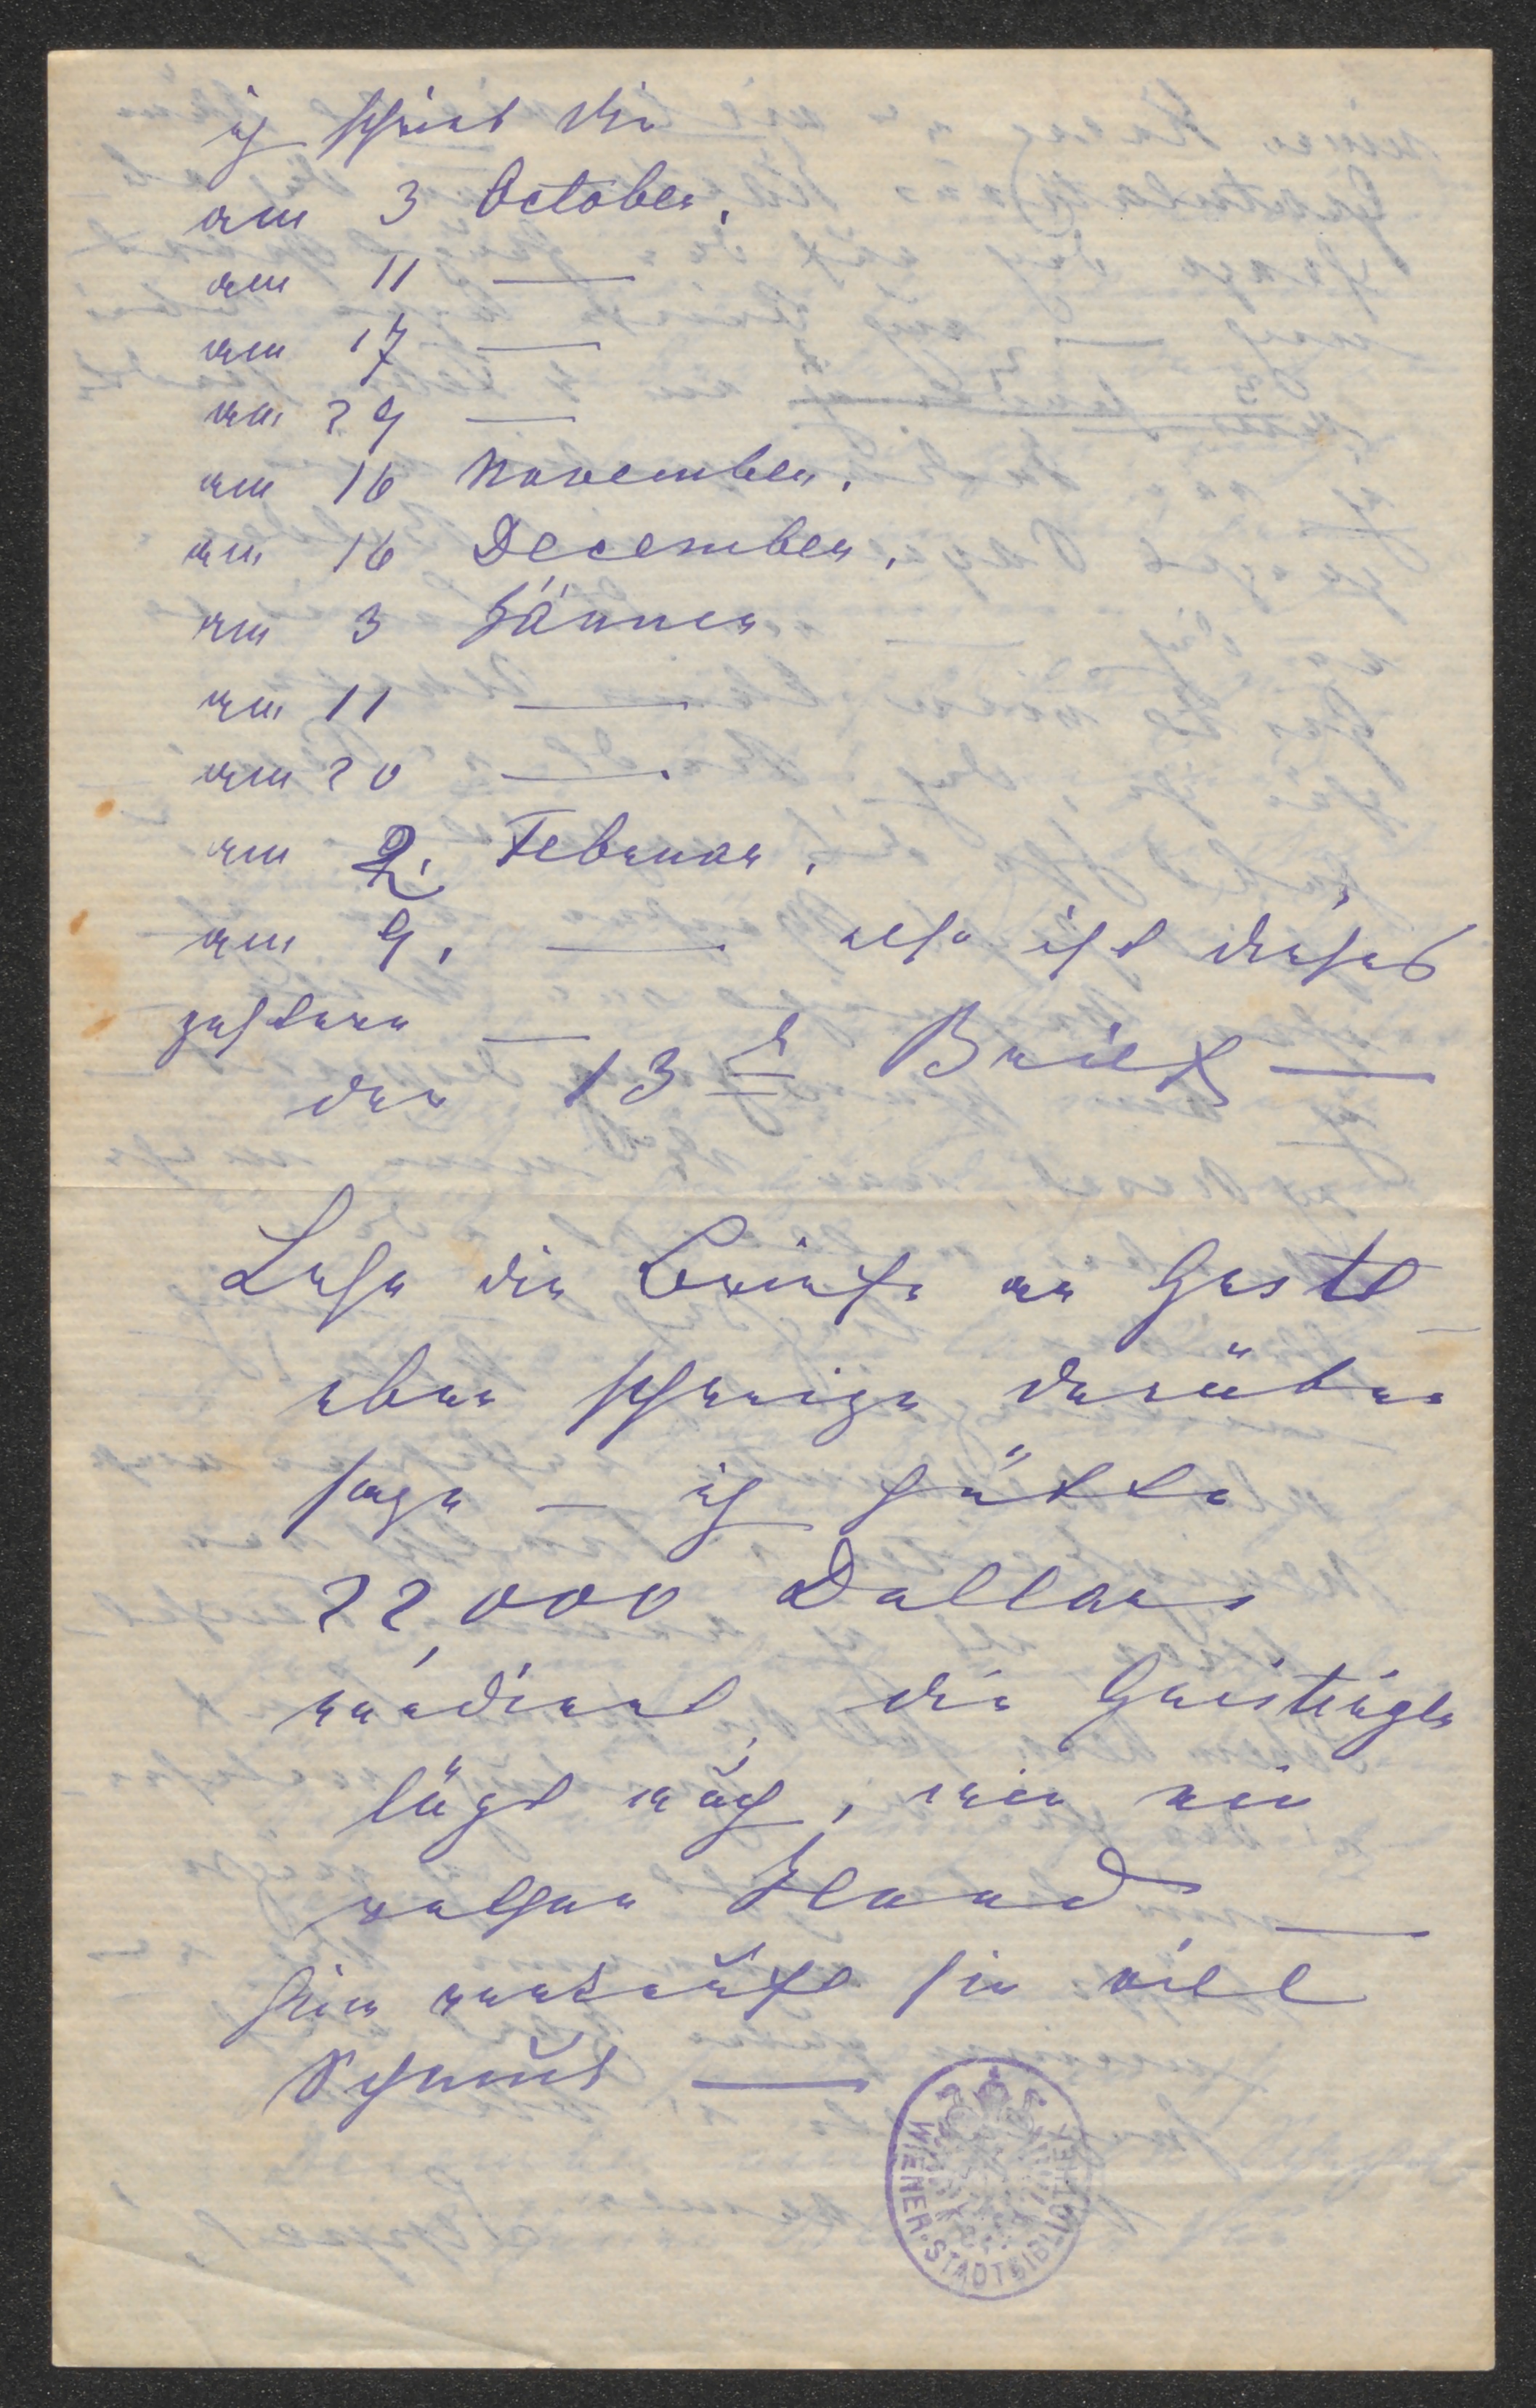 ich schrieb Dir
am 3 October.
am 11 —
am 17 —
am 29 —
am 16 November.
am 16 December.
am 3 Jänner
am 11 —
am 20 —
am 2. Februar.
am 9. — also ist dieses
gestern —
der 13te Brief —
Lese die Briefe an Gestl
aber schweige darüber
sage — ich hätte
22,000 Dollars
verdient, die Geistinger
lügt auch, wie ein
Hand —
hier verkauft sie viel
Schmuck —
WIENER STADTBIBLIOTHEK